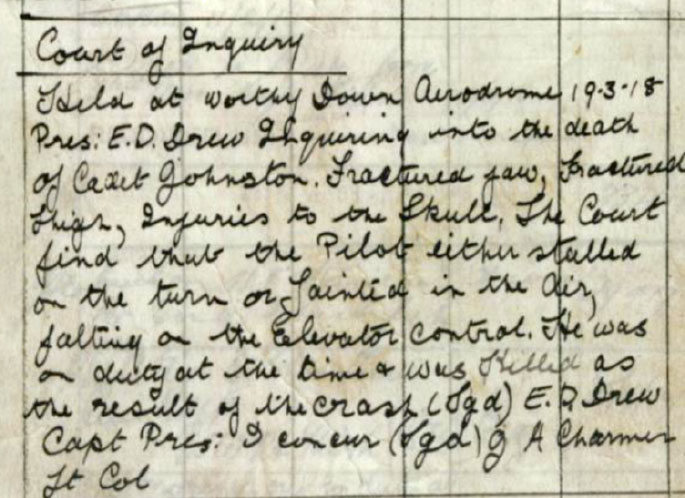 Court of Inquiry
Held at Worthy Down Aerodrome 19-3-18
Pres: E.D. Drew Inquiring into the death
of Cadet Johnston. Fractured jaw, Fractured
thigh, Injuries to the Skull. The Court
find that the Pilot either stalled
on the turn or fainted in the Air,
falling on the Elevator control. He was
on duty at the time & was Killed as
the result of the crash (Sgd) E.D. Drew
Capt Pres: I concur (Sgd) G A Charmer
Lt Col